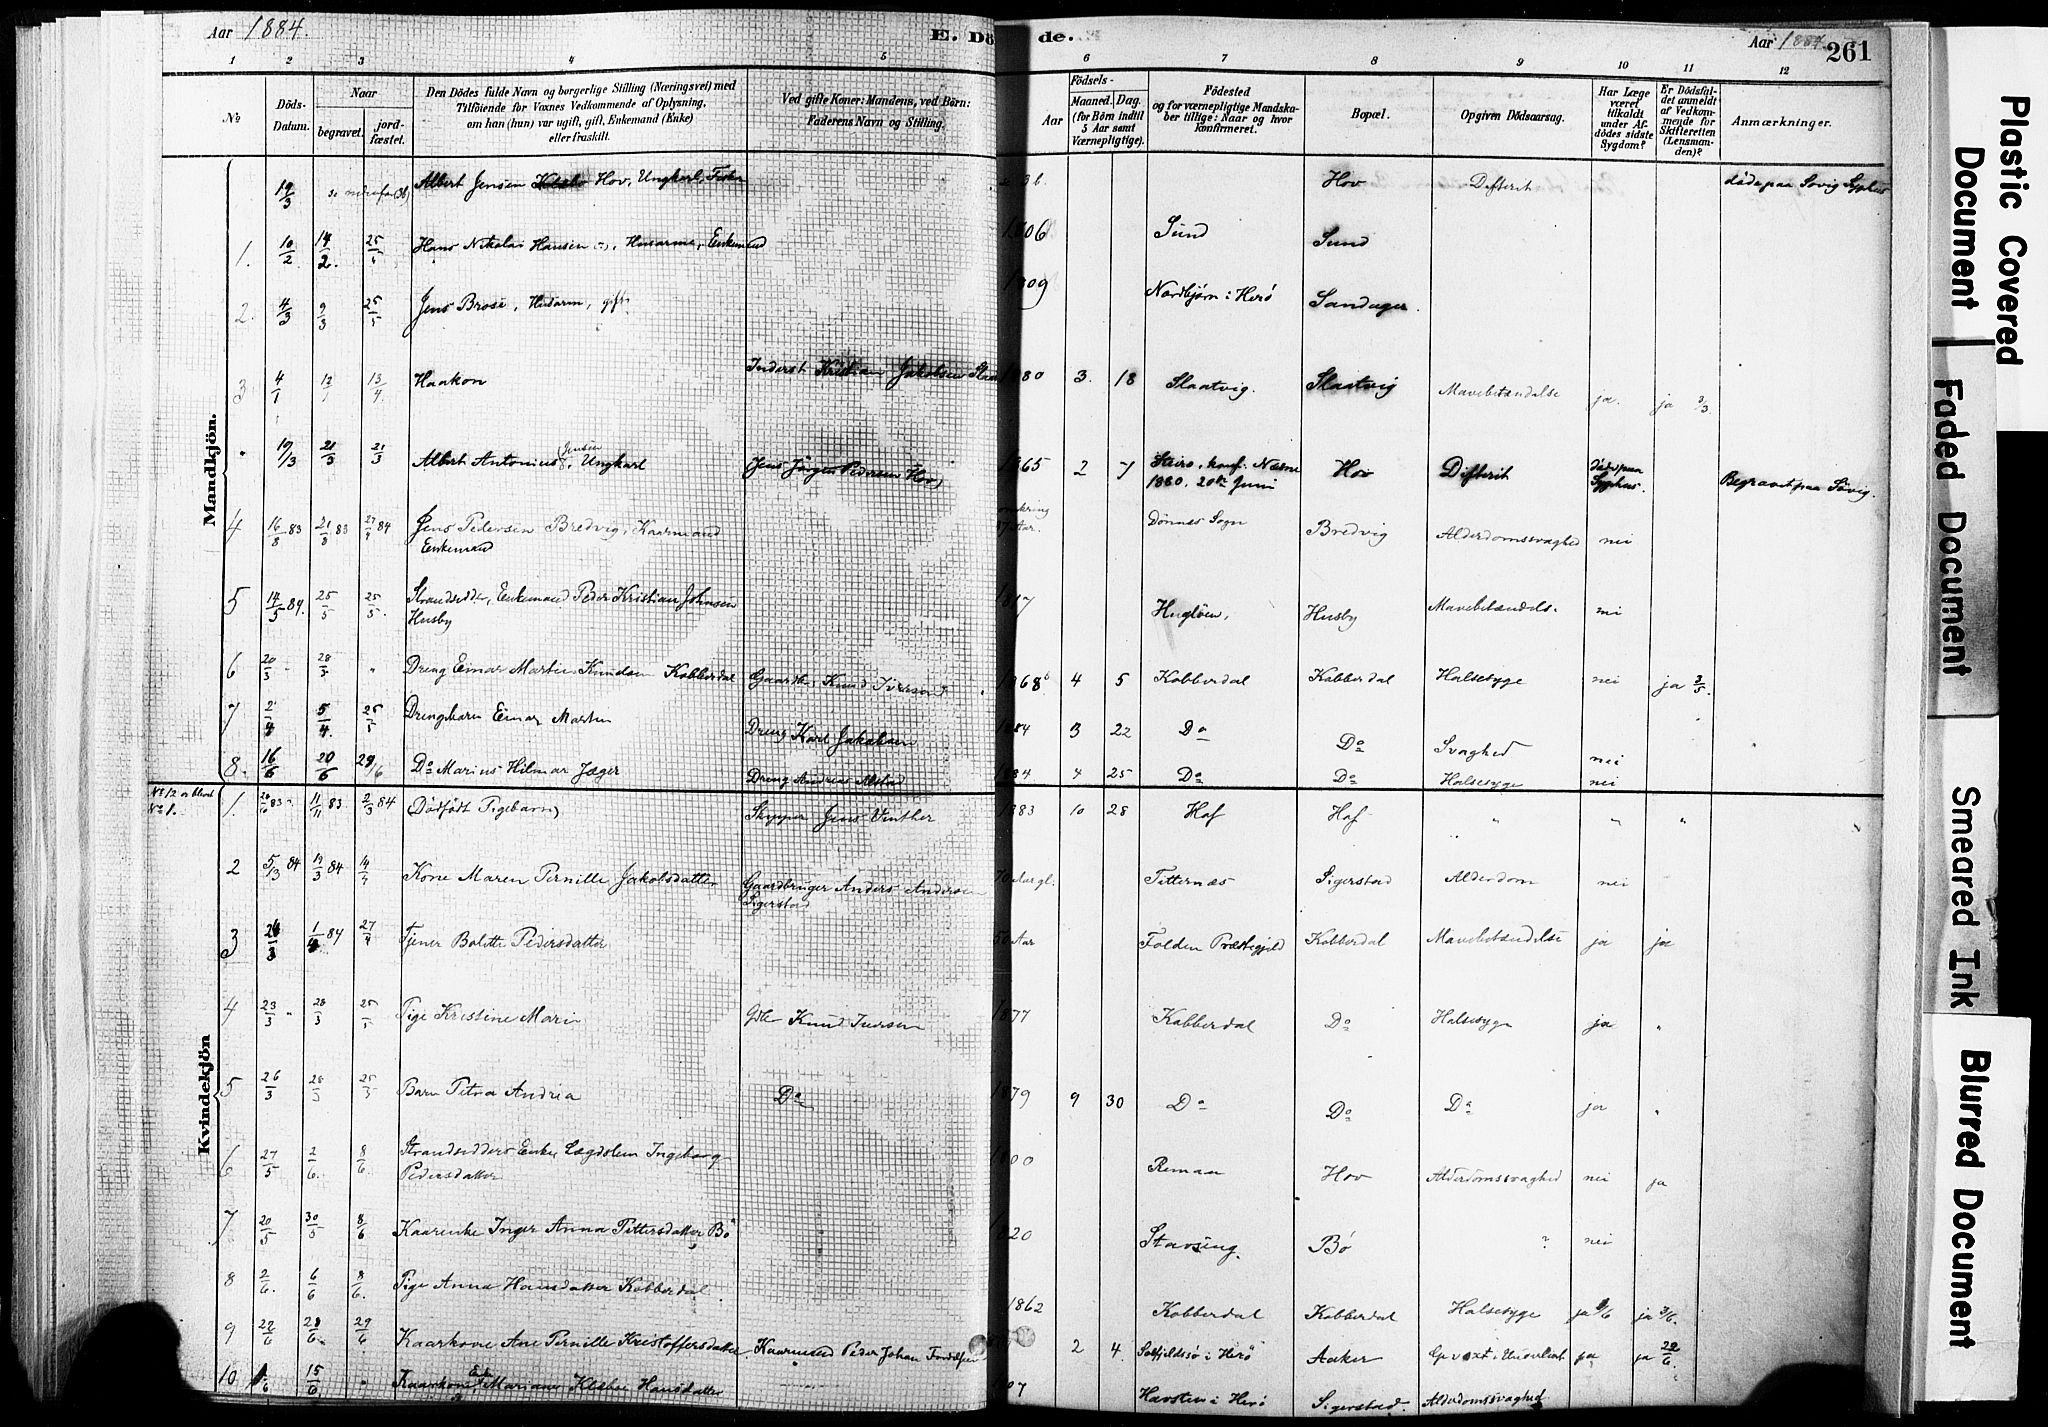 Aar 1884.
E. Dö de.
Aar 1884.
261
1 2 3 4 5 6 7 8 9 10 11 12
No.
Döds-Datum.
Naar
begravet.
jord-fæstet.
Den Dödes fulde Navn og borgerlige Stilling (Næringsvei) med
Tilföiende for Voxnes Vedkommende af Oplysning,
om han (hun) var ugift, gift, Enkemand (Enke)
eller fraskilt.
Ved gifte Koner: Mandens, ved Börn:
Faderens Navn og Stilling.
Födsels-
Aar
Maaned.
Dag.
(for Börn indtil
5 Aar samt
Værnepligtige).
Födested
og for værnepligtige Mandska-
ber tillige: Naar og hvor
konfirmeret.
Bopæl.
Opgiven Dödsaarsag.
Har Læge
været
tilkaldt
under Af-
dödes sidste
Sygdom?
Er Dödsfal-
det anmeldt
af Vedkom-
mende for
Skifteretten
(Lensman-
den)?
Anmærkninger.
Mandkjön.
19/3 Albert Jensen Hov, Ungkarl, Fisker Hov Difterit döde paa Sövig Sygehus
1. 10/2 14/2 25/5 Hans Nikolai Hansen Husarm, Enkemand 1806 Sund Sund
2. 4/3 9/3 25/5 Jens Brose, Husarm, gift. 1809 Nordbjørn i Herö Sandager.
3 Haakon Inderst Kristian Jakobsen 1880 3. 18 Slaatvig. Slaatvig Mavebetændelse ja. ja 3/3
" 19/3 21/3 21/3 Albert Antonius Jensen, Ungkarl Jens Jörgen Pedersen Hov 1865 2 7 1880, 20de Juni Hov Difterit Begravet paa Sövig.
4 16/8 83 21/8 83 27/4 84 Jens Pedersen Bredvig, Kaarmand Enkemand Dønnes Sogn Bredvig Alderdomssvaghed nei
5 14/5 84. 25/5 25/5. Strandsidder, Enkemand Peder Kristian Johnsen Husby 1817 Huglöen, Husby Mavebetændels. nei
6 20/3 28/3 " Dreng Einar Martin Knudsen Kobberdal Gaardbr. Knud Iversen 1868 4 5 Kobberdal Kobberdal Halsesyge nei ja 3/5.
7 2/4 5/4. 25/5 Drengebarn Einar Martin Dreng Karl Jakobsen 1884 3 22 Do Do Svaghed nei
8. 16/6 20/6 29/6 Do Marius Hilmar Jæger Dreng Andreas Alstad 1884 4 25 Do Do Halsesyge nei
Kvindekjön
1. 28/10 83 11/11 83 2/3 84 (Dödfödt Pigebarn) Skipper Jens Vinther 1883 10 28 Haf Haf " " "
2 5/3 84 19/3 84 Kone Maren Pernille Jakobsdatter Gaardbruger Anders Andersen Sigerstad 70 Aar gl. Titternæs Sigerstad Alderdom nei
3 26/3 1/4 84 27/4 Tjener Bolette Pedersdatter 50 Aar Folden Præstegjeld Kobberdal Mavebetændelse ja ja
4 23/3 28/3 25/5 Pige Kristine Marie Gdbr Knud Iversen 1877 Kobberdal Do Halsesyge ja "
5 26/3 28/3 25/5 Barn Petra Andrea Do 1879 9 30 Do Do Do ja "
6 27/5 2/6. 8/6. Strandsidders Enke Lægdslem Ingeborg Pedersdatter 1800 Reman Hov Alderdomssvaghed nei ja
7 20/5 30/5 8/6 Kaarenke Inger Anna Pettersdatter Bö 1820 Stavseng. Bö ? nei
8 2/6. 6/6 8/6. Pige Anna Hansdatter Kobberdal 1862 Kobberdal Kobberdal Halsesyge ja 2/6 ja 3/6.
9 22/6 28/6. 29/6 Kaarkone Ane Pernille Kristoffersdatter. Kaarmand Peder Johan 2 4. i Herö Aaker Gevext i Underlivet ja ja 22/6.
10 15/6 " Kaarkone Enke Mariane Hansdatter 1807 Havsten i Herö Sigerstad. Alderdomssvaghed
Plastic Covered Document
Faded Document
Smeared Ink
Blurred Document